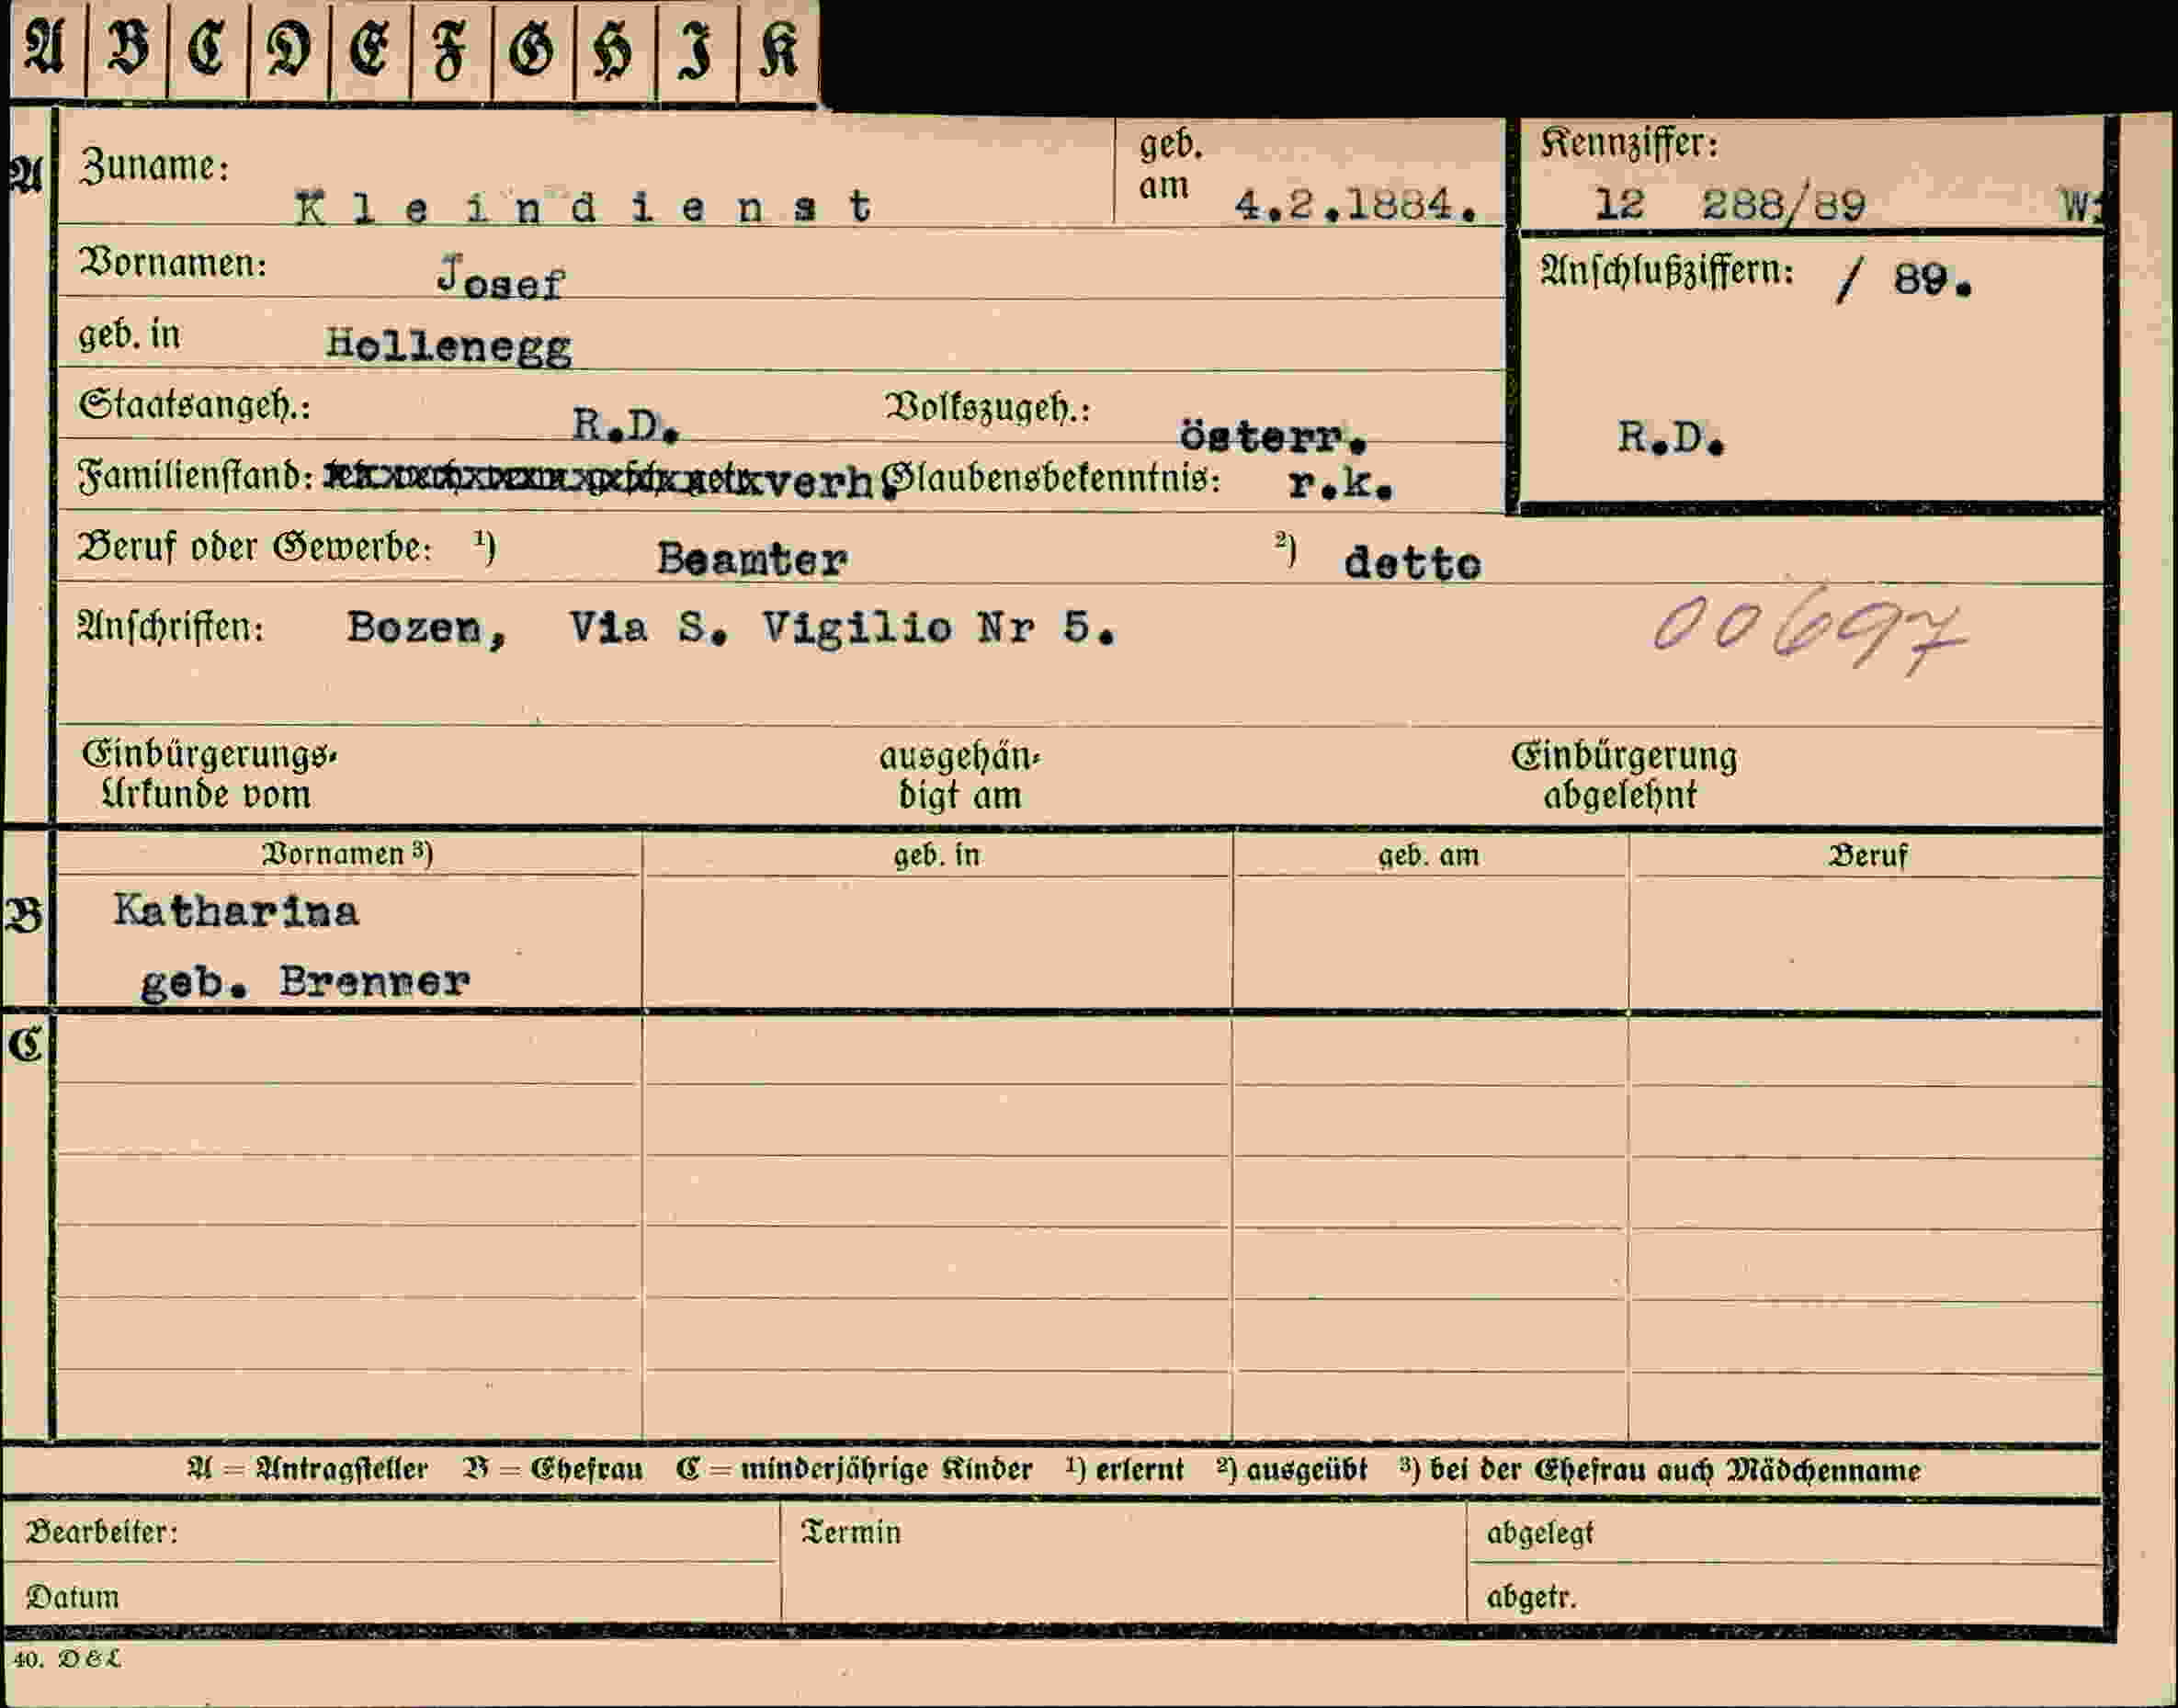 A B C D E F G H I K
A Zuname: Kleindienst geb. am 4.2.1884. Kennziffer: 12 288/89
Vornamen: Josef Anschlußziffern: / 89.
geb. in Hollenegg
Staatsangeh.: R.D. Volkszugeh.: österr. R.D.
Familienstand: verh. Glaubensbekenntnis: r.k.
Beruf oder Gewerbe: 1) Beamter 2) detto
Anschriften: Bozen, Via S. Vigilio Nr 5. 00697
Einbürgerungs- ausgehän- Einbürgerung
Urkunde vom digt am abgelehnt
Vornamen 3) geb. in geb. am Beruf
B Katharina
geb. Brenner
C
A = Antragsteller B = Ehefrau C = minderjährige Kinder 1) erlernt 2) ausgeübt 3) bei der Ehefrau auch Mädchenname
Bearbeiter: Termin abgelegt
Datum abgetr.
40. D & L